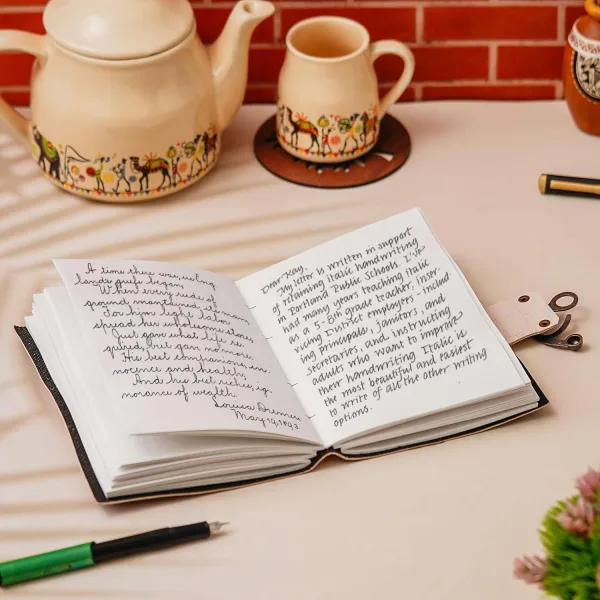 A time there was, ere
land's griefs began,
When every rood of
ground maintained its man
For him light labor
spread her wholesome store,
Just gave what life re-
quired, but gave no more,
His best companions, in-
nocence and health;
And his best riches, ig-
norance of wealth.
Louisa
May 19, 1893
Dear Kay,
My letter is written in support
of retaining italic handwriting
in Portland Public Schools. I've
had many years teaching italic
as a 5-8th grade teacher, inser-
vicing District employees - includ-
ing principals, janitors, and
secretaries, and instructing
adults who want to improve
their handwriting. Italic is
the most beautiful and easiest
to write of all the other writing
options.